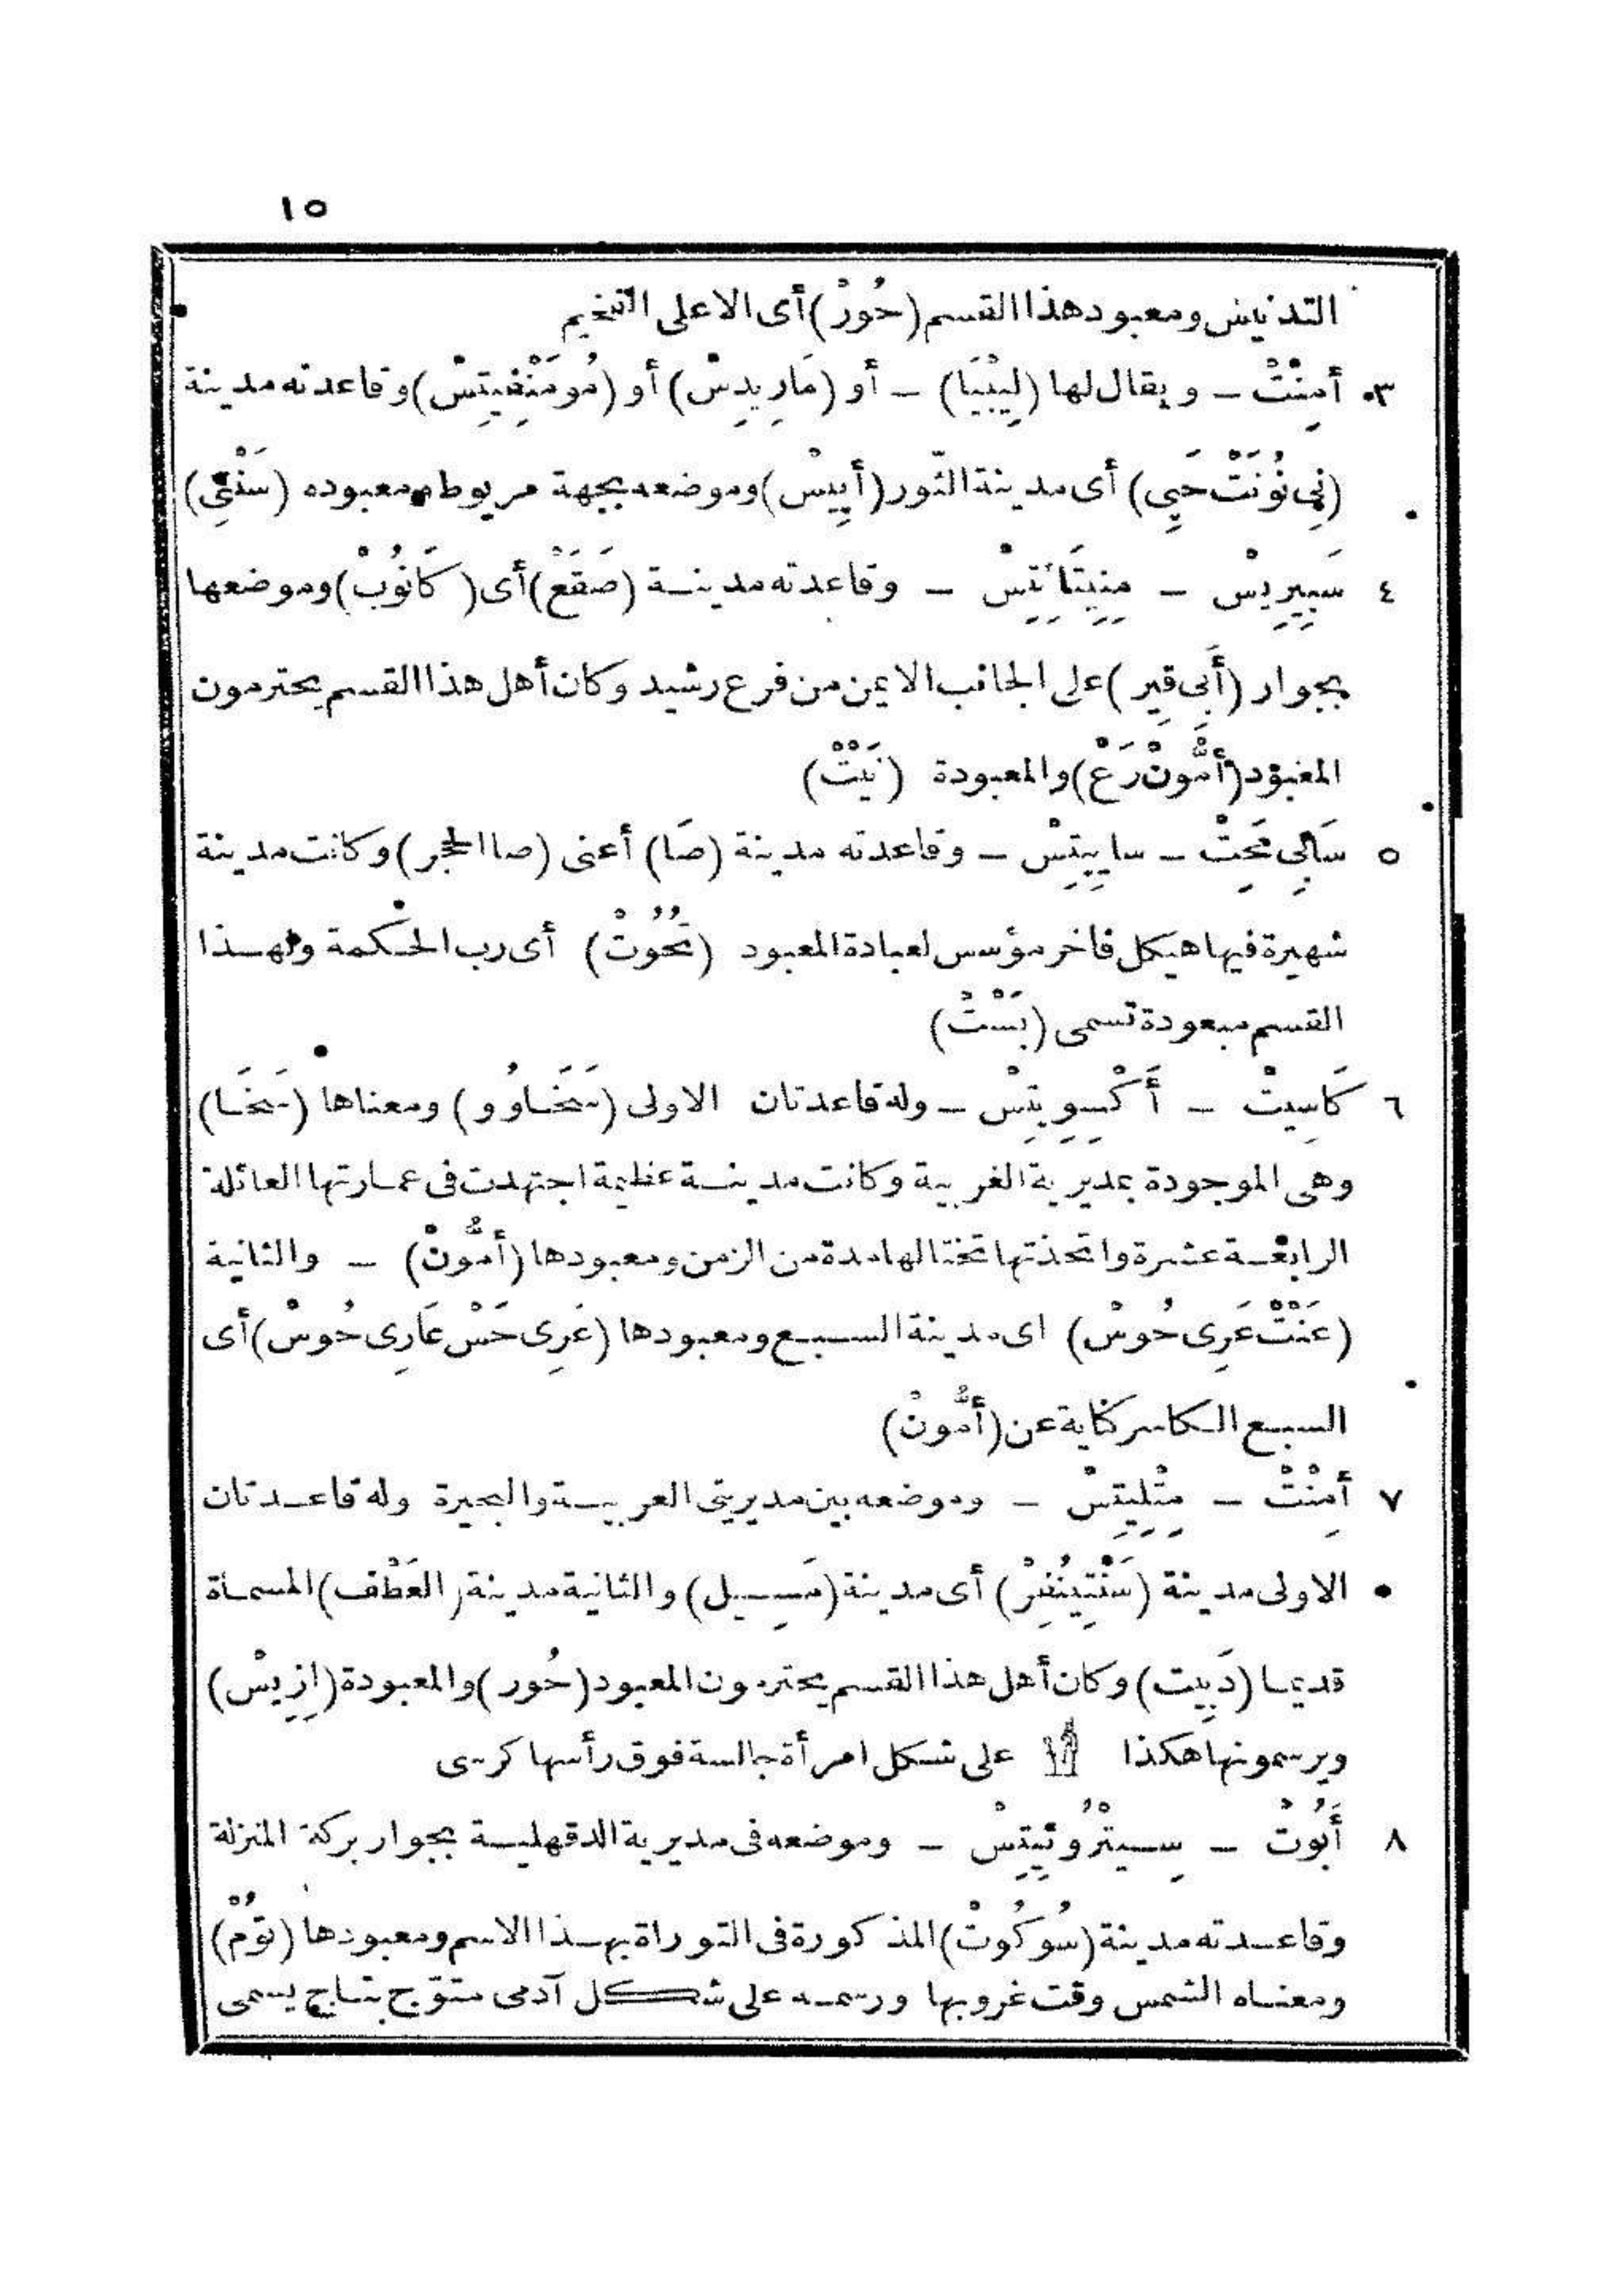 ١٥
التدنيس ومعبود هذا القسم (حُورْ) أى الاعلى الفخيم
٣ أَمِنْتْ – ويقال لها (لِيبْيَا) – أو (مَارِيدِسْ) أو (مُومَنْفِيتِسْ) وقاعدته مدينة
(نِى نُونَتْ حَپِى) أى مدينة الثور (أَپِيسْ) وموضعه بجهة مريوط ومعبوده (سَنْتِى)
٤ سَپِيرِيسْ – مِنِيتَائِتِسْ – وقاعدته مدينة (صَقَعْ) أى (كَانُوبْ) وموضعها
بجوار (أَبِى قِير) على الجانب الايمن من فرع رشيد وكان أهل هذا القسم يحترمون
المعبود (أَمُّونْ رَعْ) والمعبودة (نَيْتْ)
٥ سَاپِى مَحِتْ – ساييتِسْ – وقاعدته مدينة (صَا) أعنى (صا الحجر) وكانت مدينة
شهيرة فيها هيكل فاخر مؤسس لعبادة المعبود (تُحُوتْ) أى رب الحكمة ولهذا
القسم مبعودة تسمى (بَسْتْ)
٦ كَاسِيتْ – أَكْسِوِيتِسْ – وله قاعدتان الاولى (سَخَاوُو) ومعناها (سَخَا)
وهى الموجودة بمديرية الغربية وكانت مدينة عظيمة اجتهدت فى عمارتها العائلة
الرابعة عشرة واتخذتها تختا لها مدة من الزمن ومعبودها (أَمُّونْ) – والثانية
(عَنْتْ عَرِى حُوسْ) اى مدينة السبع ومعبودها (عَرِى حَسْ عَارِى حُوسْ) أى
السبع الكاسر كناية عن (أَمُّونْ)
٧ أَمِنْتْ – مِتْلِيتِسْ – وموضعه بين مديريتى الغربية والبحيرة وله قاعدتان
الاولى مدينة (سَنْتِينُفِرْ) أى مدينة (مَسِيل) والثانية مدينة (العَطْف) المسماة
قديما (دَبِيت) وكان أهل هذا القسم يحترمون المعبود (حُور) والمعبودة (اِزِيسْ)
ويرسمونها هكذا على شكل امرأة جالسة فوق رأسها كرسى
٨ أَبُوتْ – سِيتْرُوئِيتِسْ – وموضعه فى مديرية الدقهلية بجوار بركة المنزلة
وقاعدته مدينة (سُوكُوتْ) المذكورة فى التوراة بهذا الاسم ومعبودها (تُومْ)
ومعناه الشمس وقت غروبها ورسمه على شكل آدمى متوّج بتاج يسمى